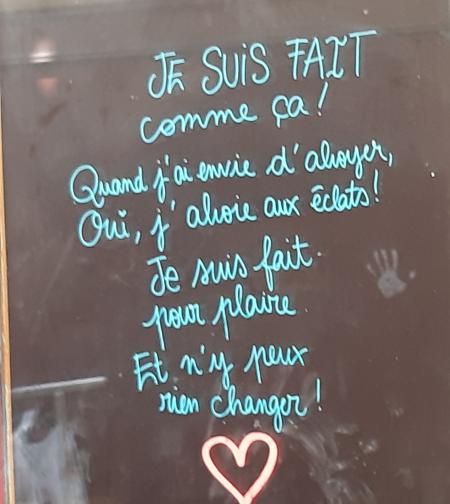 JE SUIS FAIT
comme ça!
Quand j'ai envie d'aboyer,
Oui, j'aboie aux éclats!
Je suis fait
pour plaire
Et n'y peux
rien changer!